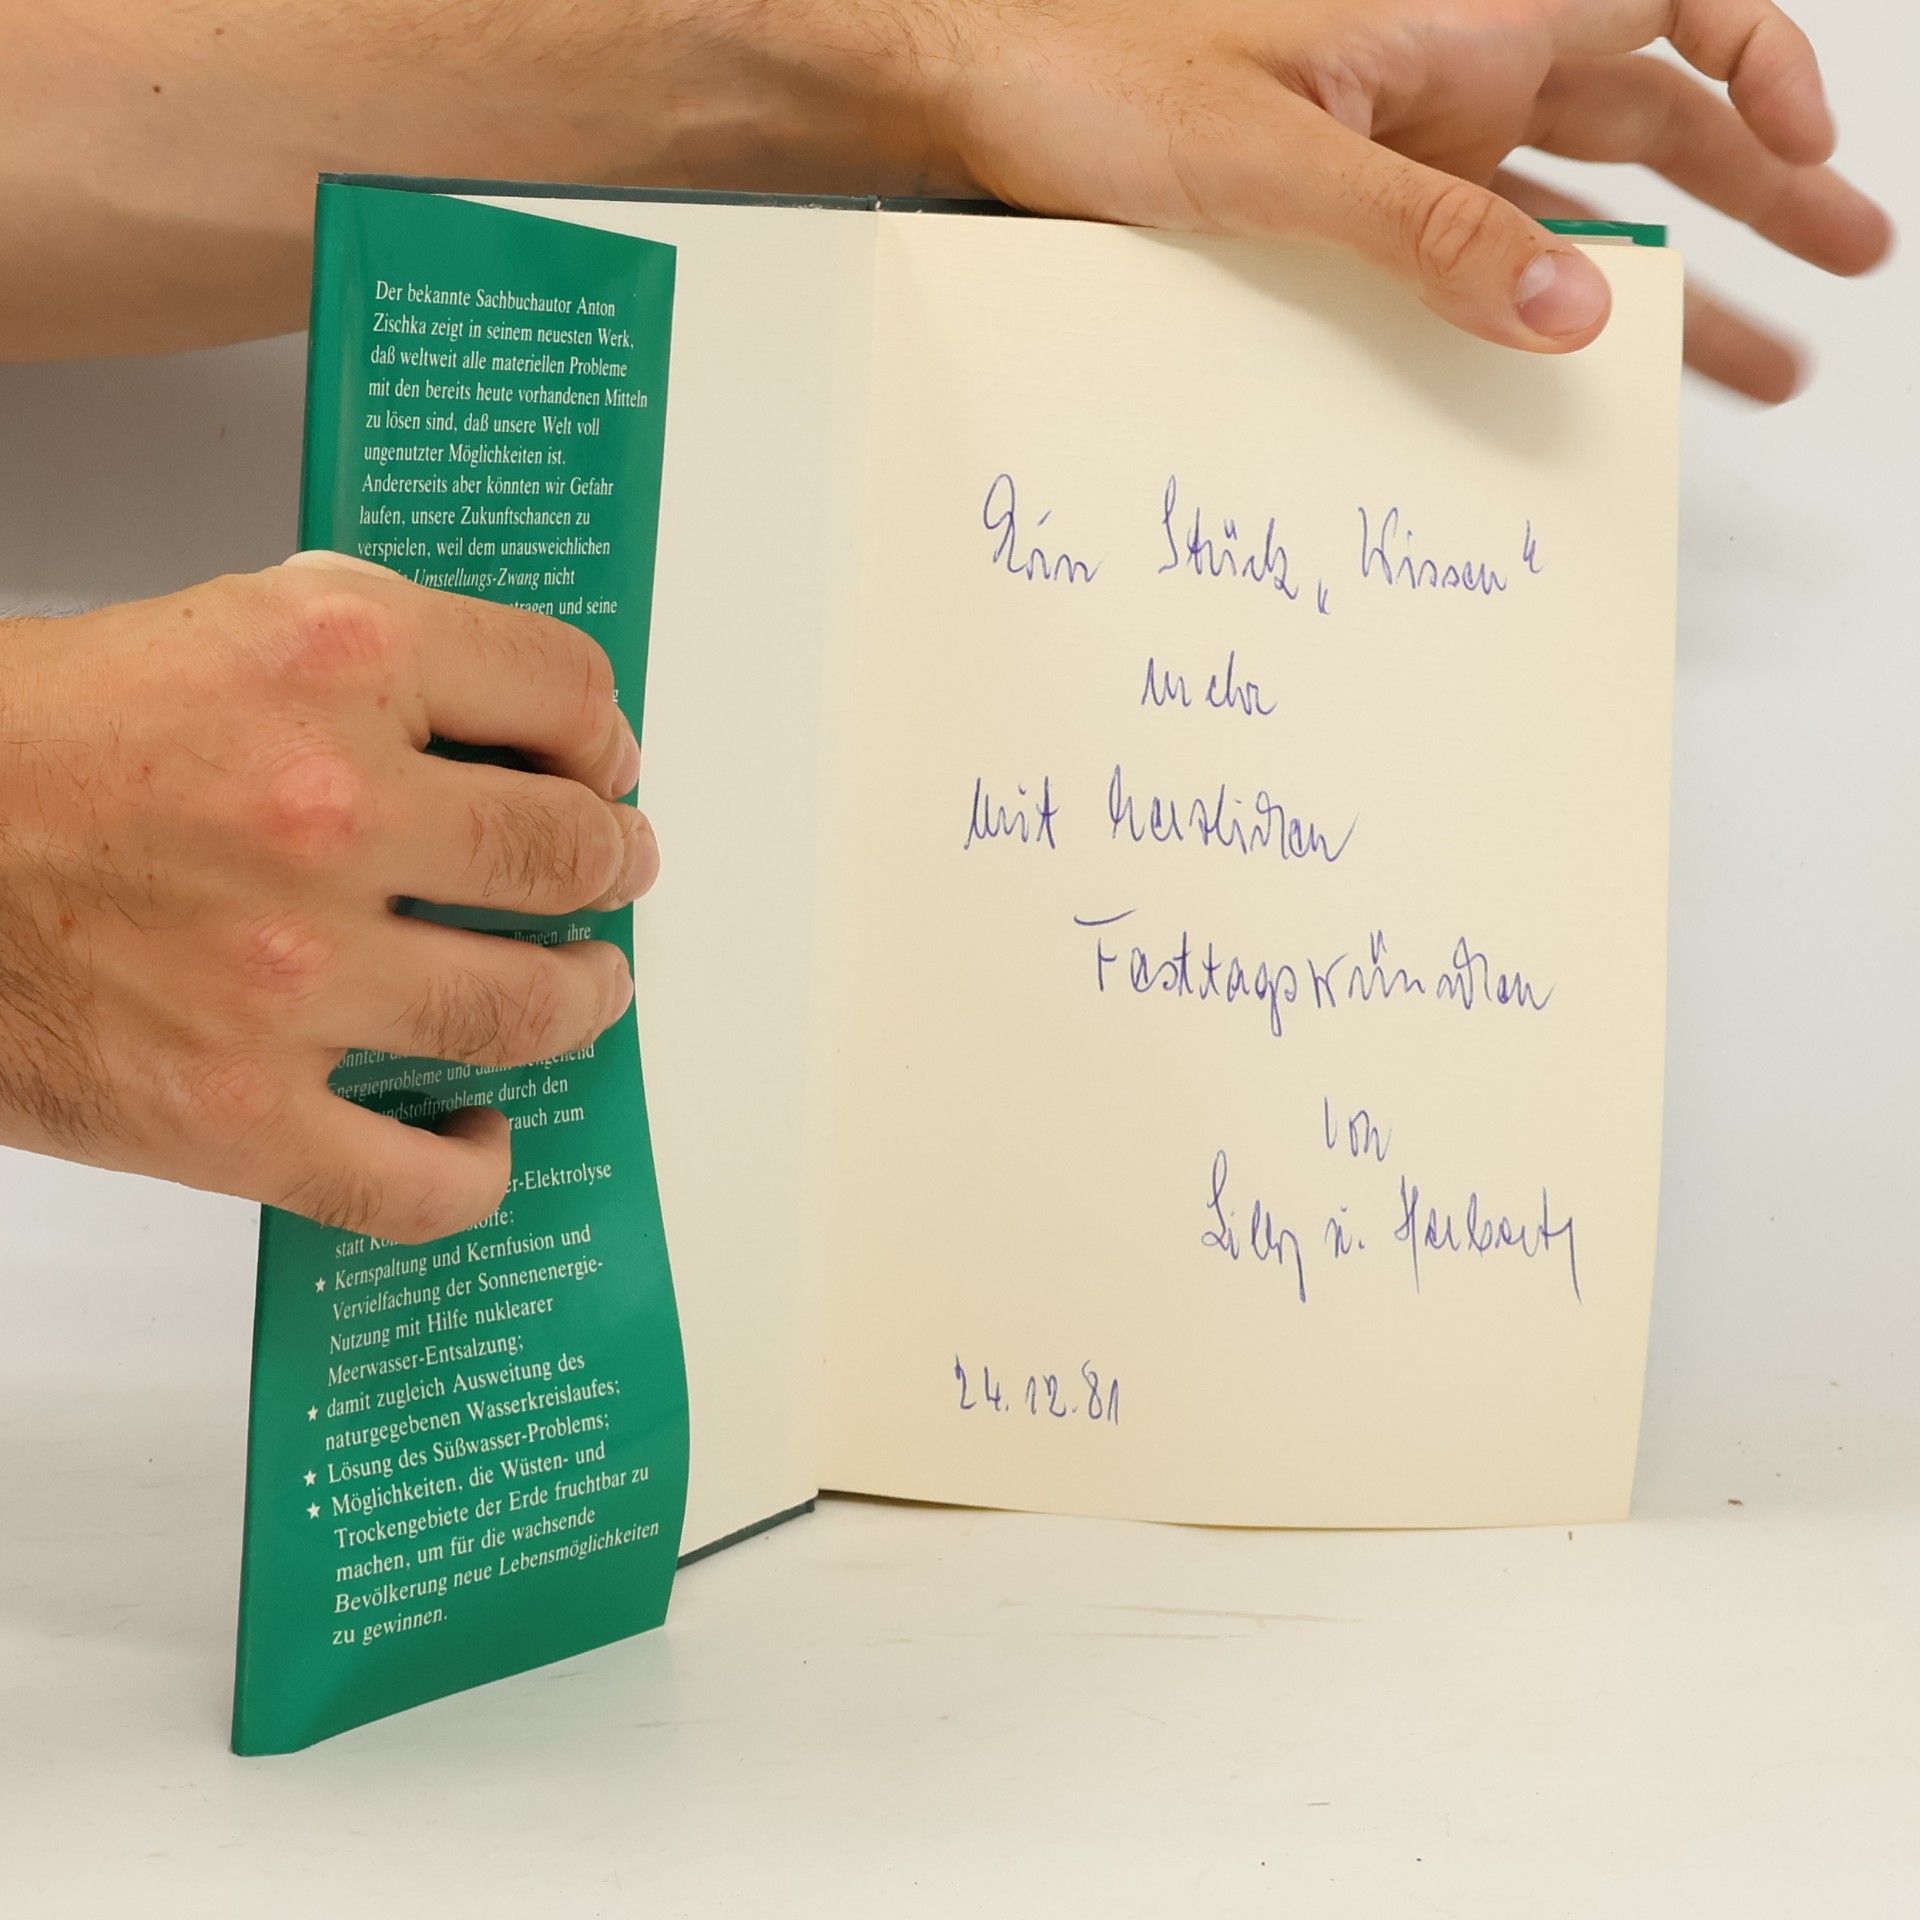 Der bekannte Sachbuchautor Anton
Zischka zeigt in seinem neuesten Werk,
daß weltweit alle materiellen Probleme
mit den bereits heute vorhandenen Mitteln
zu lösen sind, daß unsere Welt voll
ungenutzter Möglichkeiten ist.
Andererseits aber könnten wir Gefahr
laufen, unsere Zukunftschancen zu
verspielen, weil dem unausweichlichen
Umstellungs-Zwang nicht
und seine
ihre
Energieprobleme und
durch den
zum
statt
★ Kernspaltung und Kernfusion und
Vervielfachung der Sonnenenergie-
Nutzung mit Hilfe nuklearer
Meerwasser-Entsalzung;
★ damit zugleich Ausweitung des
naturgegebenen Wasserkreislaufes;
★ Lösung des Süßwasser-Problems;
★ Möglichkeiten, die Wüsten- und
Trockengebiete der Erde fruchtbar zu
machen, um für die wachsende
Bevölkerung neue Lebensmöglichkeiten
zu gewinnen.
Ein Stück „Wissen“
mehr
mit herzlichen
Festtagswünschen
von
Lilly u. Herbert
24.12.81